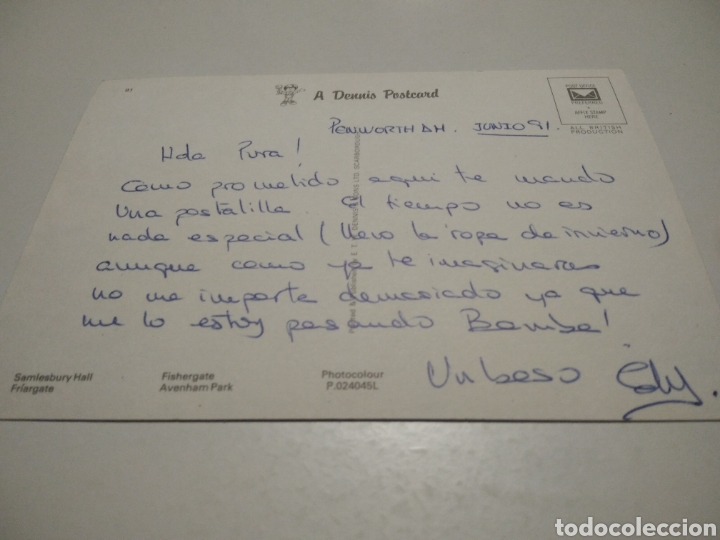 A Dennis Postcard
POST OFFICE
PREFERRED
AFFIX STAMP
HERE
ALL BRITISH
PRODUCTION
PENWORTHAM. JUNIO 91.
Hola Pura!
Como prometido aqui te mando
una postalilla. El tiempo no es
nada especial (llevo la ropa de invierno)
aunque como ya te imaginares
no me importa demasiado ya que
me lo estoy pasando Bomba!
Un beso Edy.
Samlesbury Hall
Friargate
Fishergate
Avenham Park
Photocolour
P.024045L
todocoleccion